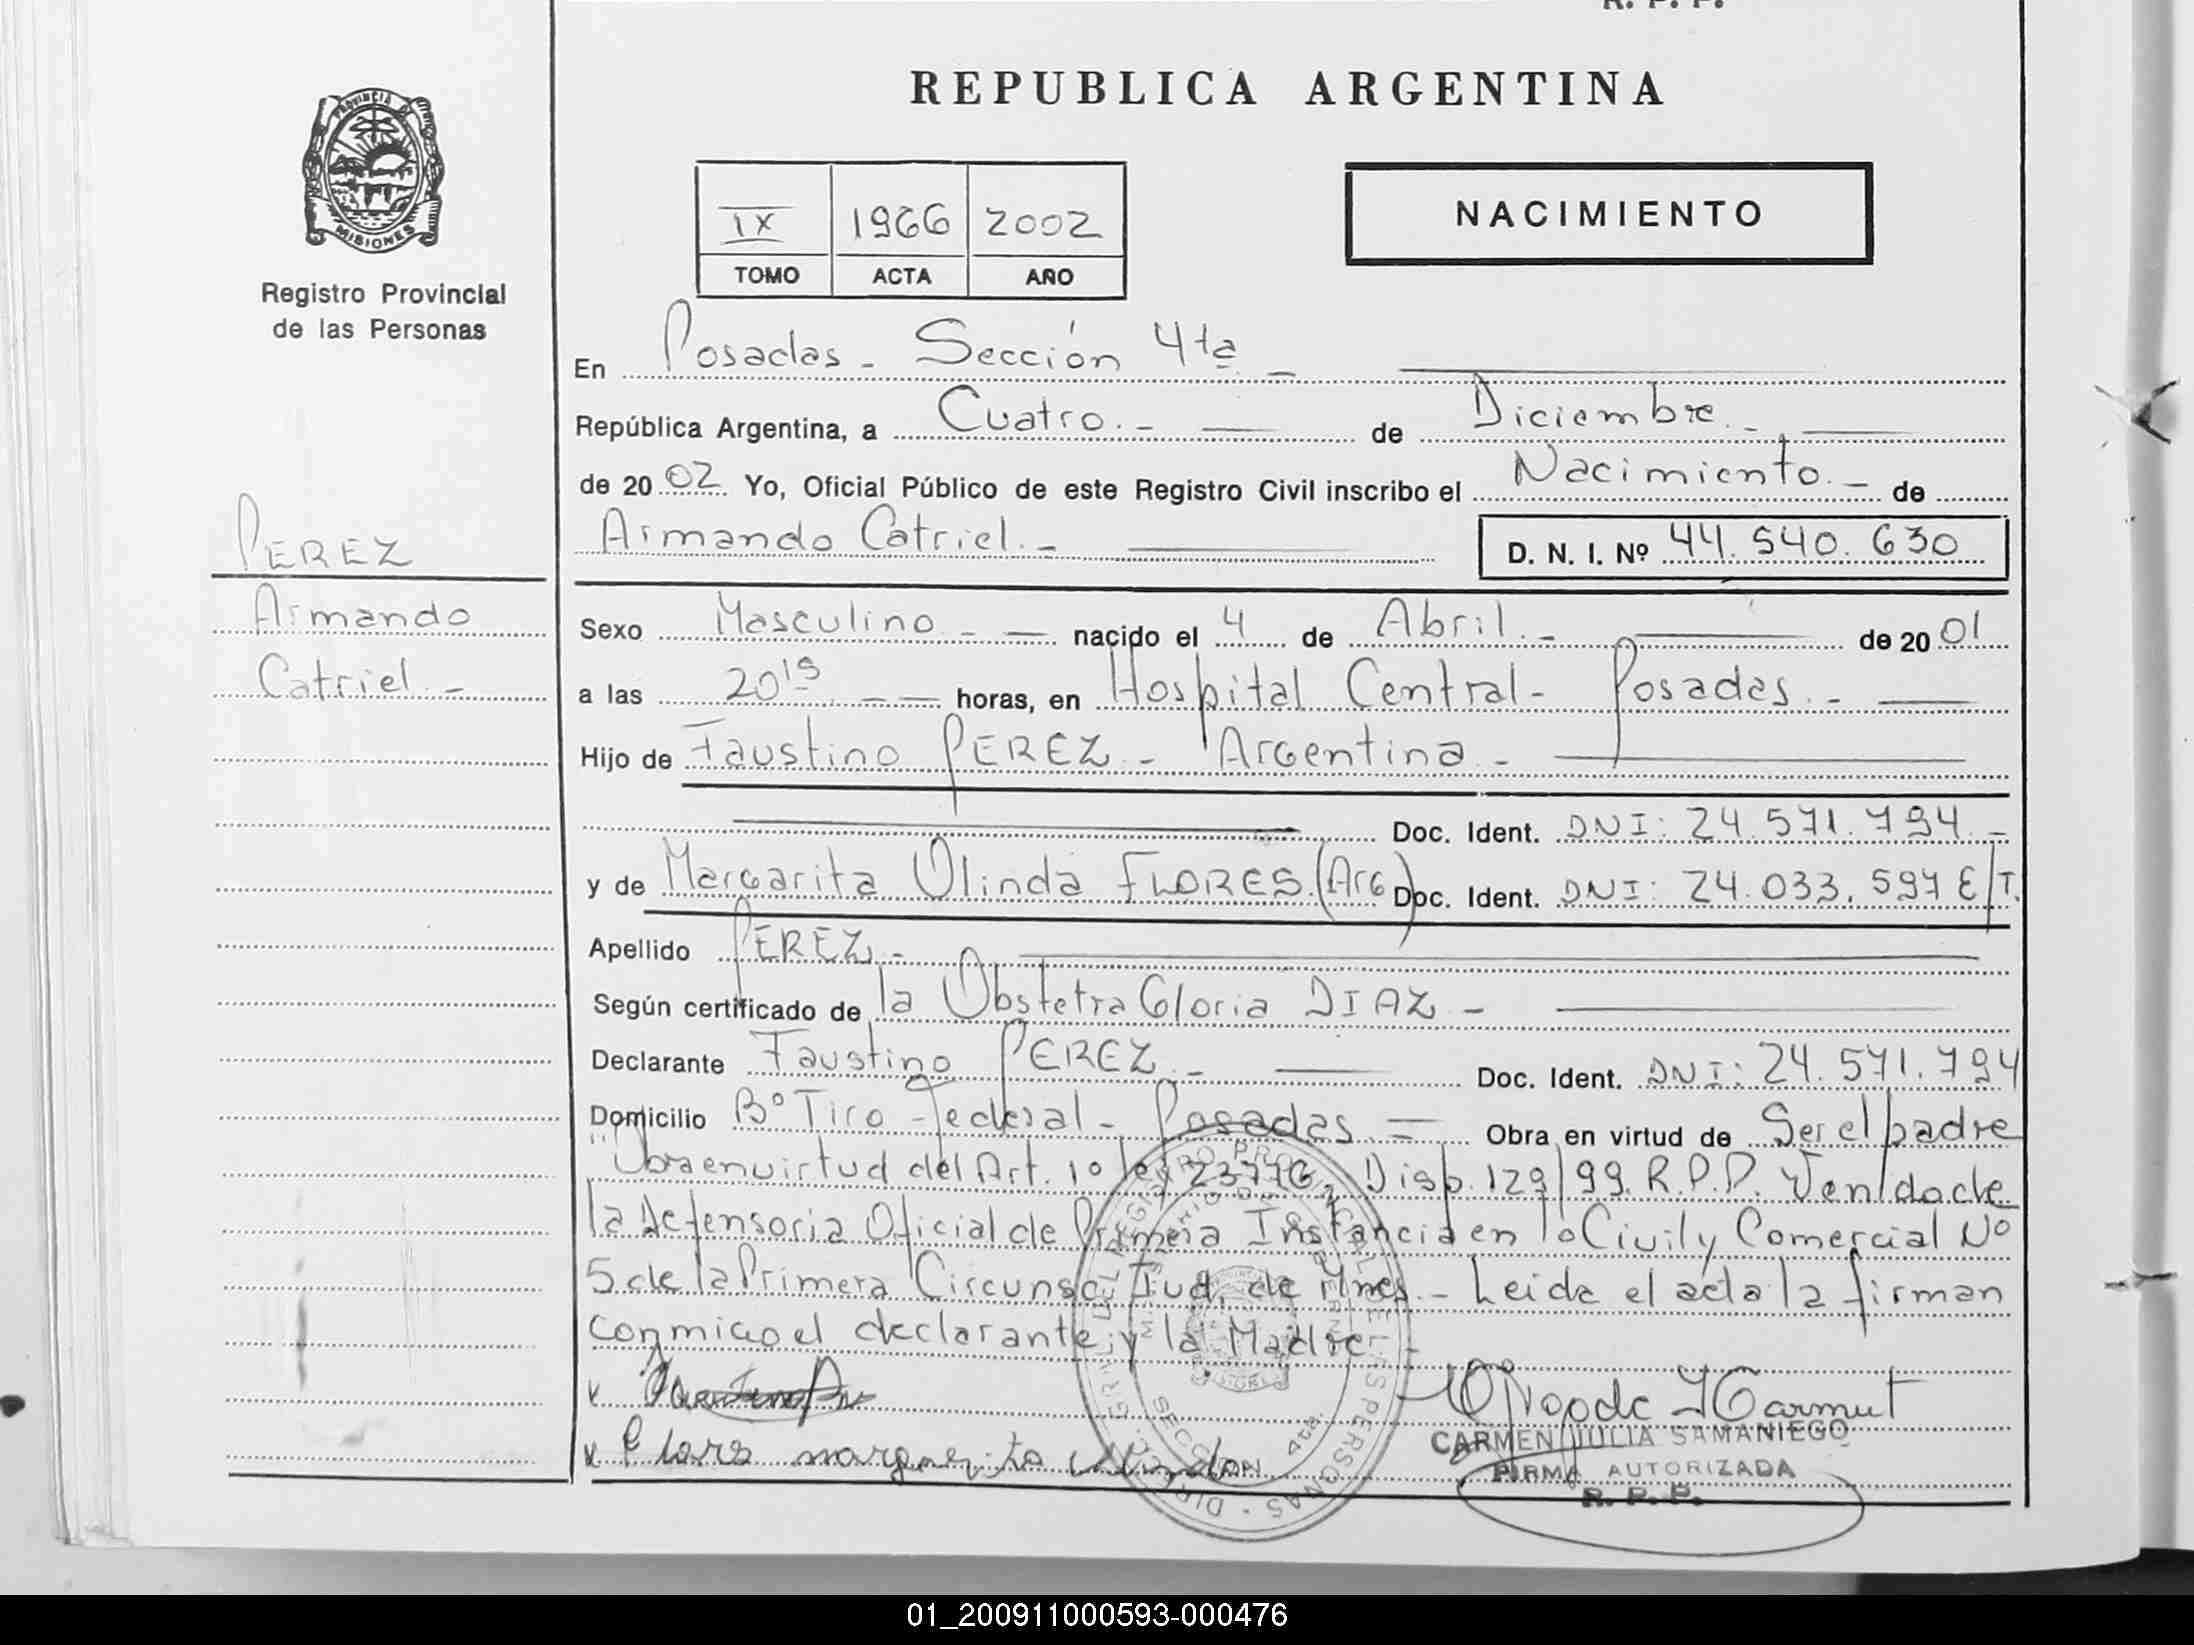 R. P. P.
REPUBLICA ARGENTINA
PROVINCIA DE
MISIONES
Registro Provincial
de las Personas
IX 1966 2002
TOMO ACTA AÑO
NACIMIENTO
En Posadas - Sección 4ta -
República Argentina, a Cuatro.- de Diciembre.-
de 20 02 Yo, Oficial Público de este Registro Civil inscribo el Nacimiento.- de
Armando Catriel.- D. N. I. Nº 44.540.630
PEREZ
Armando
Catriel.-
Sexo Masculino - nacido el 4 de Abril.- de 20 01
a las 20 15 horas, en Hospital Central - Posadas.-
Hijo de Faustino PEREZ - Argentina -
Doc. Ident. DNI: 24.571.794.-
y de Margarita Olinda FLORES (Arg) Doc. Ident. DNI: 24.033.597 E/T.
Apellido PEREZ.-
Según certificado de la Obstetra Gloria DIAZ -
Declarante Faustino PEREZ.- Doc. Ident. DNI: 24.571.794
Domicilio Bº Tiro Federal - Posadas - Obra en virtud de Ser el padre
"Obra en virtud del Art. 1º ley 23776, Disp. 129/99. R.P.P. Venida de
la Defensoria Oficial de Primera Instancia en lo Civil y Comercial Nº
5 de la Primera Circunsc. Jud. de Mnes.- Leida el acta la firman
conmigo el declarante y la Madre -
Flores margarita olinda
CARMEN JULIA SAMANIEGO
FIRMA AUTORIZADA
R. P. P.
SECCION 4ta.
01_200911000593-000476